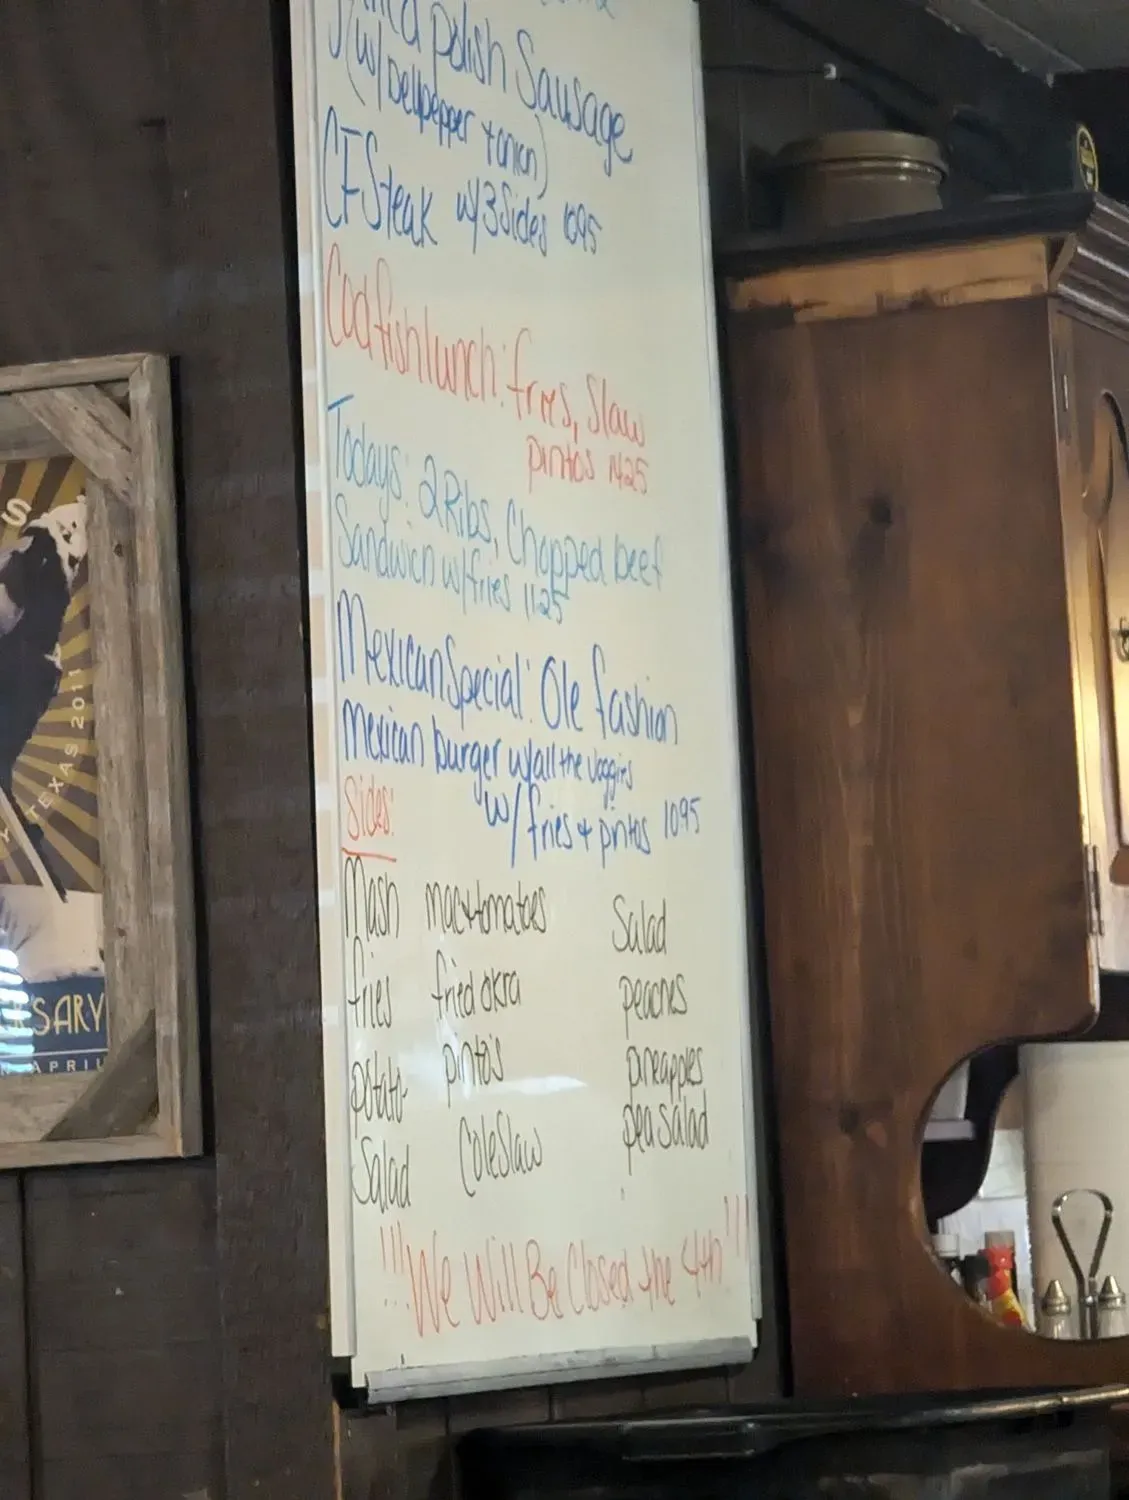 Polish Sausage
(w/ bellpepper + onion)
CFSteak w/3Sides 1095
Codfish lunch: fries, Slaw
pintos 1425
Todays: 2 Ribs, Chopped beef
Sandwich w/fries 1125
Mexican Special: Ole fashion
Mexican burger w/all the veggies
w/ fries + pintos 1095
Sides:
Mash mac+tomatoes Salad
fries fried okra peaches
potato- pinto's pineapples
Salad ColeSlaw pea Salad
!!! We Will Be Closed the 4th !!!
S
TEXAS 2011
RSARY
APRIL